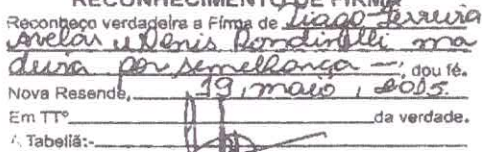 RECONHECIMENTO DE FIRMA
Reconheço verdadeira a Firma de Tiago Ferreira
Avelar e Denis Rondinelli ma
deira por semelhança —, dou fé.
Nova Resende, 19, maio, 2015.
Em TTº da verdade.
Tabeliã:-